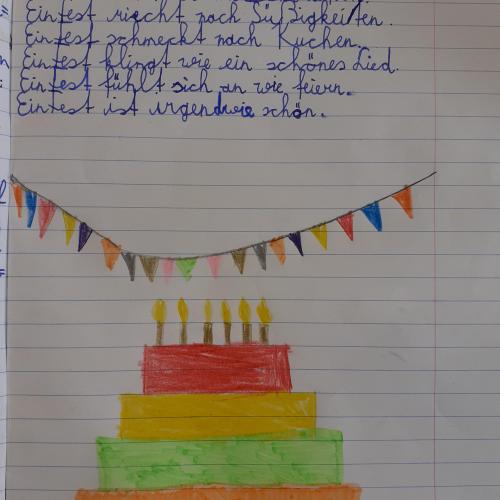 Ein Fest riecht nach Süßigkeiten.
Ein Fest schmeckt nach Kuchen.
Ein Fest klingt wie ein schönes Lied.
Ein Fest fühlt sich an wie feiern.
Ein Fest ist irgendwie schön.